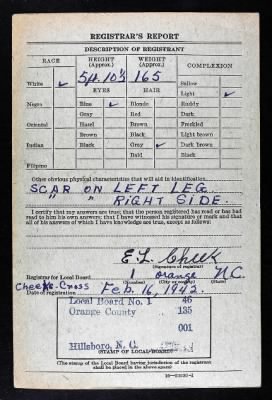 REGISTRAR'S REPORT
DESCRIPTION OF REGISTRANT
RACE HEIGHT (Approx.) WEIGHT (Approx.) COMPLEXION
5ft. 10½ 165
White ✓ Sallow
EYES HAIR Light ✓
Negro Blue ✓ Blonde Ruddy
Gray Red Dark
Oriental Hazel Brown Freckled
Brown Black Light brown
Indian Black Gray ✓ Dark brown
Bald Black
Filipino
Other obvious physical characteristics that will aid in identification
SCAR ON LEFT LEG.
" " RIGHT SIDE.
I certify that my answers are true; that the person registered has read or has had
read to him his own answers; that I have witnessed his signature or mark and that
all of his answers of which I have knowledge are true, except as follows:
E. L. Cheek
(Signature of registrar)
Registrar for Local Board 1 Orange N.C.
(Number) (City or county) (State)
Cheeks Cross
Date of registration Feb. 16, 1942.
Local Board No. 1 46
Orange County 135
001
Hillsboro, N. C.
(STAMP OF LOCAL BOARD)
(The stamp of the Local Board having jurisdiction of the registrant
shall be placed in the above space.)